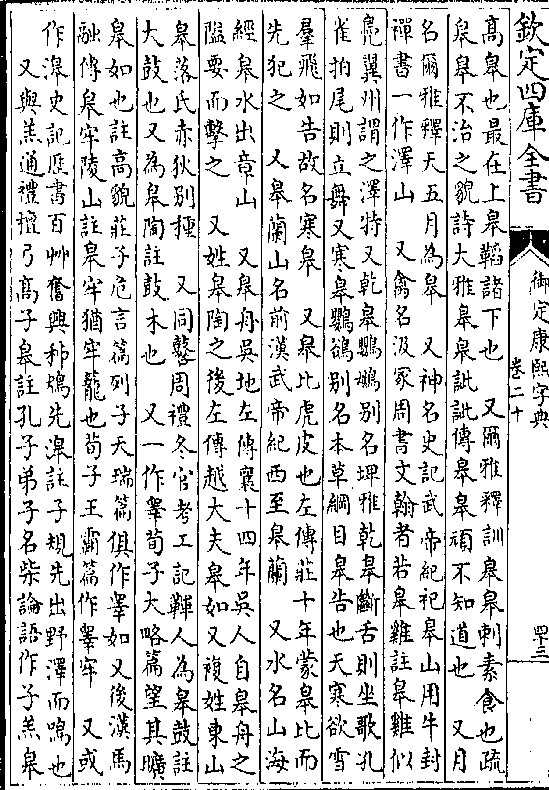 欽定四庫全書
御定康熙字典
卷二十
四十三
高皋也最在上皋韜諸下也　又爾雅釋訓皋皋刺素食也疏
皋皋不治之貌詩大雅皋皋訿訿傳皋皋頑不知道也　又月
名爾雅釋天五月為皋　又神名史記武帝紀祀皋山用牛封
禪書一作澤山　又禽名汲冢周書文翰者若皋雞註皋雞似
鳧翼州謂之澤特又乾皋鸚鵡別名埤雅乾皋斷舌則坐歌孔
雀拍尾則立舞又寒皋鸜鵒别名本草綱目皋告也天寒欲雪
羣飛如告故名寒皋　又皋比虎皮也左傳莊十年蒙皋比而
先犯之　又皋蘭山名前漢武帝紀西至皋蘭　又水名山海
經皋水出章山　又皋舟吳地左傳襄十四年吳人自皋舟之
隘要而擊之　又姓皋陶之後左傳越大夫皋如又複姓東山
皋落氏赤狄別種　又同鼛周禮冬官考工記韗人為皋鼓註
大鼓也又為皋陶註鼓木也　又一作睪荀子大略篇望其曠
皋如也註高貌莊子危言篇列子天瑞篇俱作睪如又後漢馬
融傳皋牢陵山註皋牢猶牢籠也荀子王霸篇作睪牢　又或
作滜史記歷書百艸奮興秭鳺先滜註子規先出野澤而鳴也
又與羔通禮檀弓高子皋註孔子弟子名柴論語作子羔皋